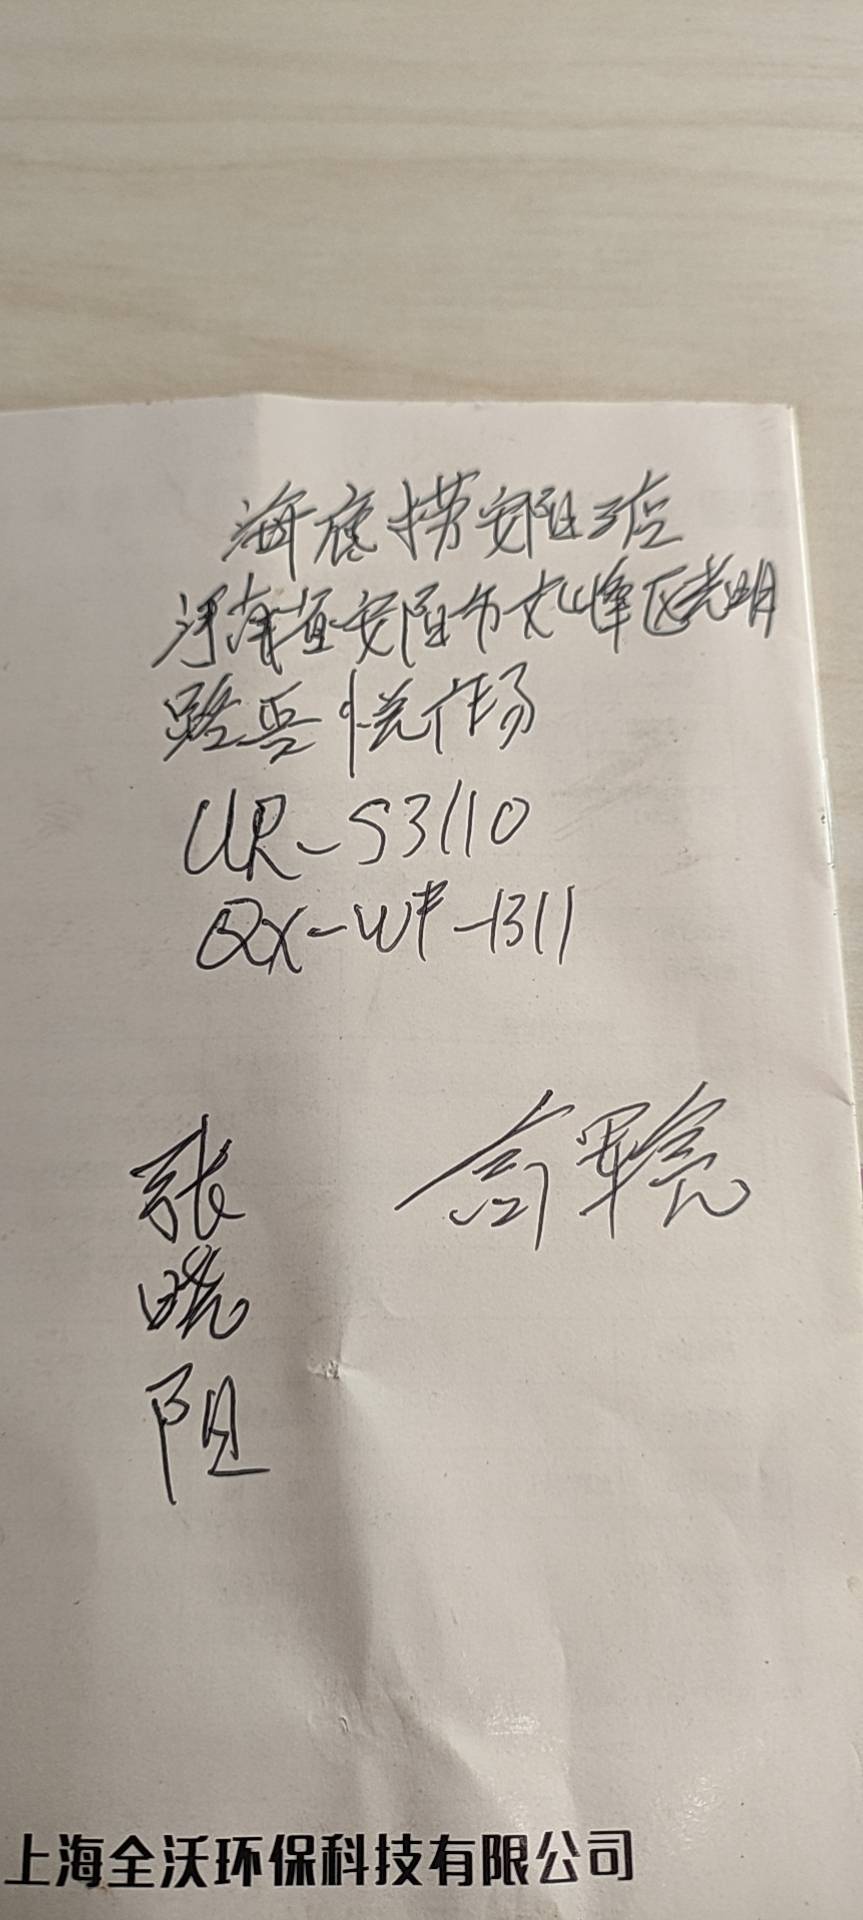 海底捞安阳三店
河南省安阳市文峰区光明
路吾悦广场
UR-S3110
QX-WF-1311
张
晓
阳
上海全沃环保科技有限公司